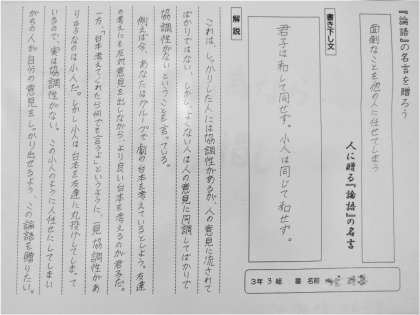 『論語』の名言を贈ろう
面倒なことを他の人に任せてしまう
人に贈る『論語』の名言
書き下し文
君子は和して同せず。小人は同じて和せず。
3年 3組 番 名前
解説
これは、しっかりした人には協調性があるが、人の意見に流されて
ばかりではない。しかし、よくない人は人の意見に同調してばかりで
協調性がないということを言っている。
例えば今、あなたはグループで劇の台本を考えているとしよう。友達
の考えにも反対意見を出しながら、より良い台本を考えるのが君子だ。
一方、「台本考えてくれたら何でも言うよ」というように、一見協調性があ
りそうなのは小人だ。しかし小人は台本を友達に丸投げしてしまって
いるので、実は協調性がない。この小人のように人任せにしてしまい
がちの人が自分の意見をしっかり出せるよう、この論語を贈りたい。